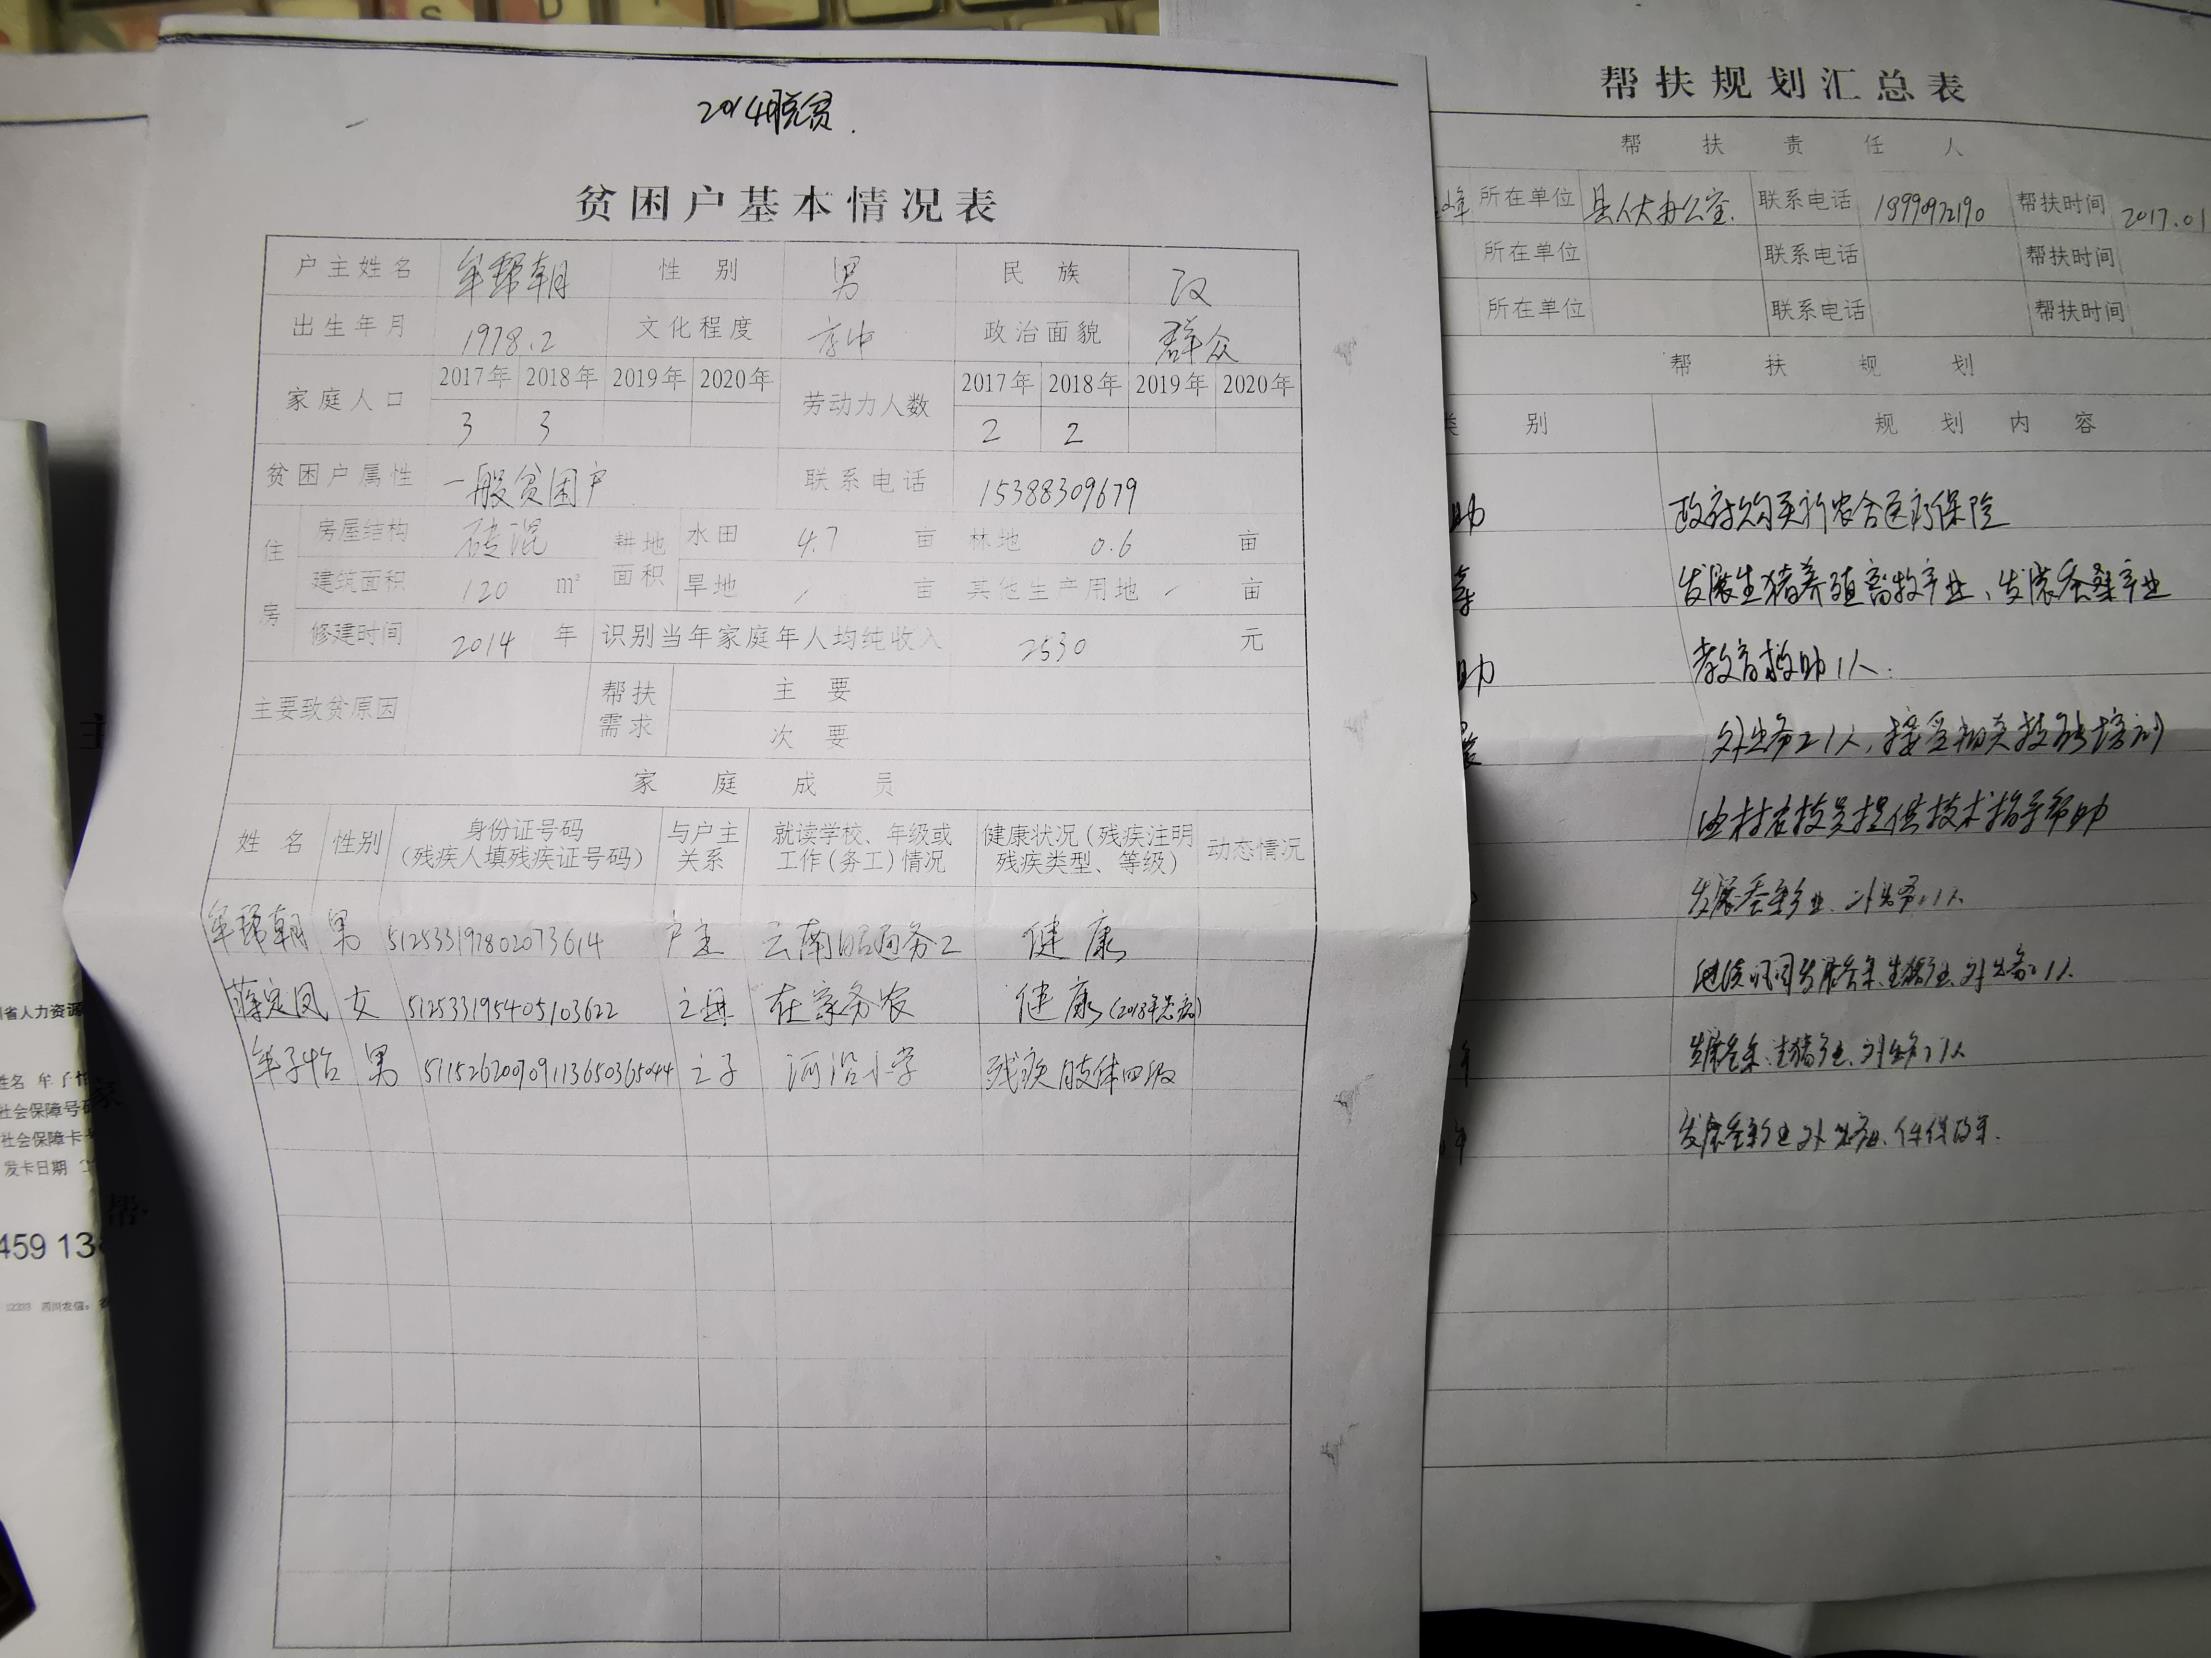 2014脱贫
贫困户基本情况表
户主姓名 牟帮朝 性别 男 民族 汉
出生年月 1978.2 文化程度 高中 政治面貌 群众
家庭人口 2017年 2018年 2019年 2020年 劳动力人数 2017年 2018年 2019年 2020年
3 3 2 2
贫困户属性 一般贫困户 联系电话 15388309679
住房 房屋结构 砖混 耕地面积 水田 4.7 亩 林地 0.6 亩
建筑面积 120 m² 旱地 / 亩 其他生产用地 / 亩
修建时间 2014 年 识别当年家庭年人均纯收入 2530 元
主要致贫原因 帮扶需求 主要
次要
家庭成员
姓名 性别 身份证号码（残疾人填残疾证号码） 与户主关系 就读学校、年级或工作（务工）情况 健康状况（残疾注明残疾类型、等级） 动态情况
牟帮朝 男 512533197802073614 户主 云南昭通务工 健康
蒋定凤 女 512533195405103622 之母 在家务农 健康(2018年患病)
牟子怡 男 511526200709113650365044 之子 河沿小学 残疾肢体四级
帮扶规划汇总表
帮扶责任人
所在单位 县人大办公室 联系电话 18990972190 帮扶时间 2017.01
所在单位 联系电话 帮扶时间
所在单位 联系电话 帮扶时间
帮扶规划
类别 规划内容
助 政府购买新农合医疗保险
发展生猪养殖畜牧产业、发展蚕桑产业
助 教育救助1人.
外出务工1人,接受相关技能培训
由村农技员提供技术指导帮助
发展蚕桑产业、外出务工1人
继续巩固发展蚕桑、生猪产业、外出务工1人
发展蚕桑、生猪产业、外出务工1人
年 发展蚕桑产业
省人力资源
姓名 牟子怡
社会保障号码
社会保障卡
发卡日期
459 13
12333